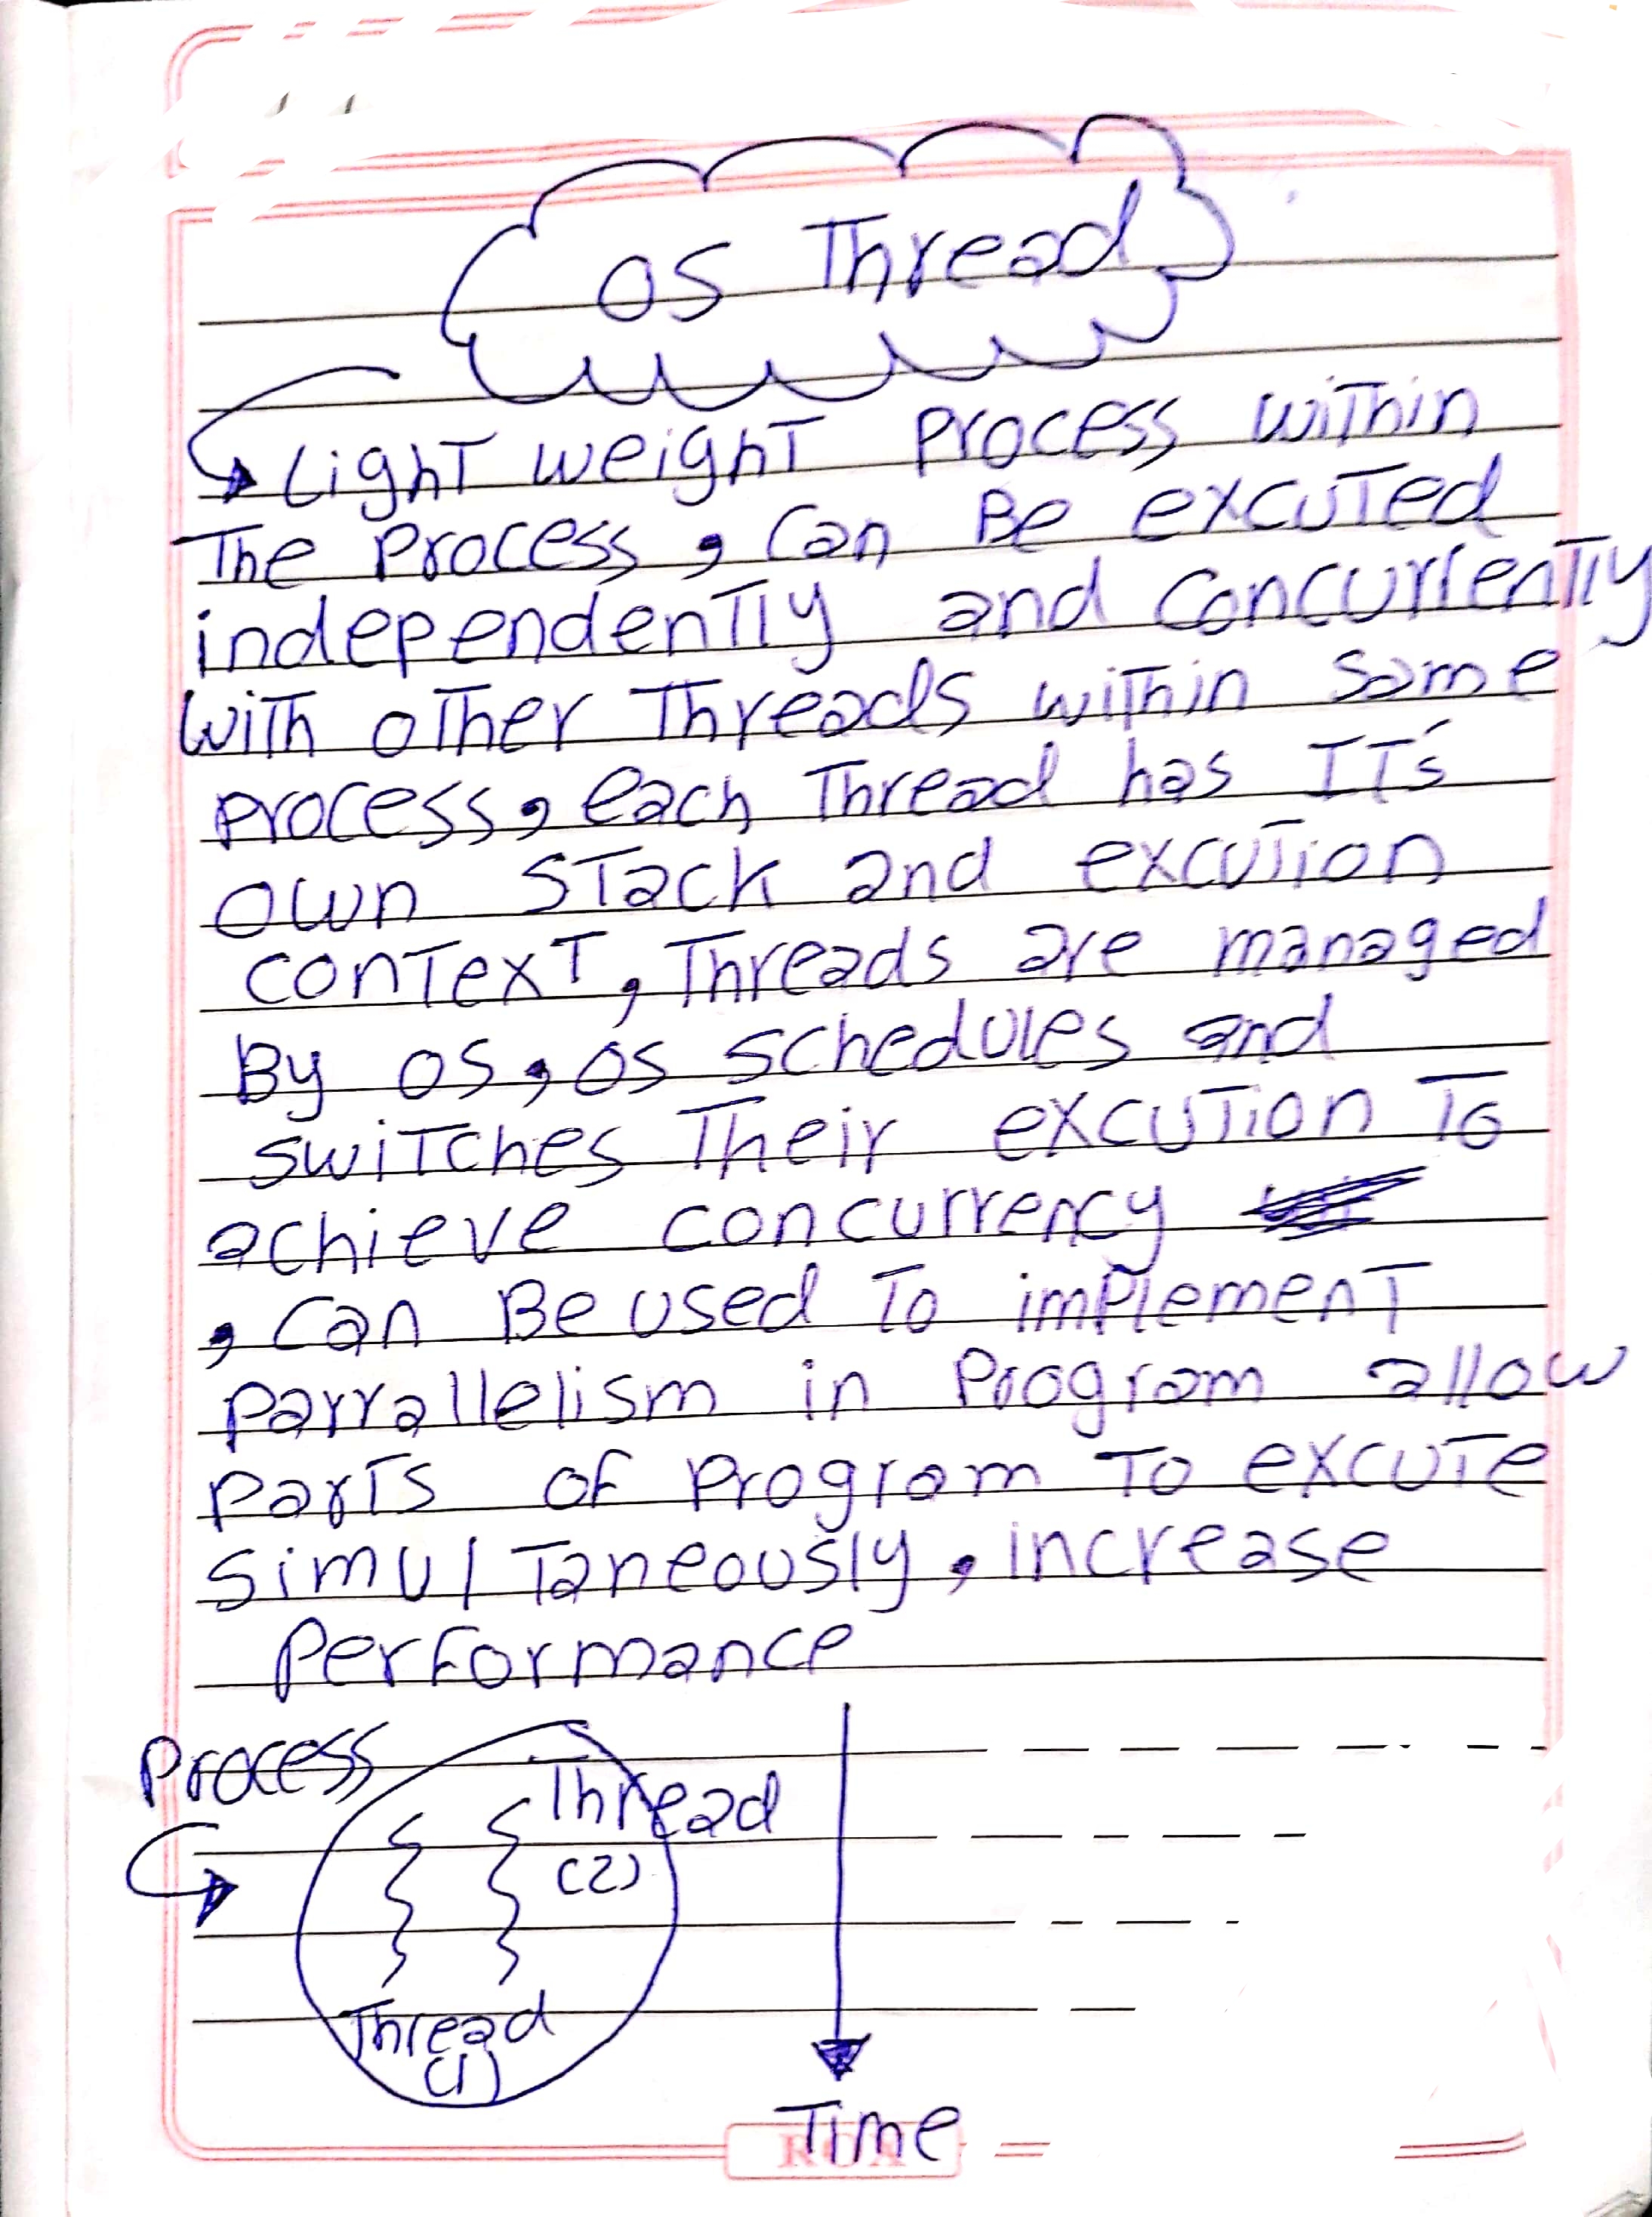 OS Thread
Light weight process within
The process, can Be excuted
independently and concurrently
with other Threads within same
process, each Thread has IT's
own STack and excution
conTexT, Threads are managed
By OS, OS schedules and
switches Their excution To
achieve concurrency
, can Be used To implement
parrallelism in program allow
parts of program To excute
simultaneously, increase
performance
Process
Thread
(2)
Thread
(1)
Time
ROA